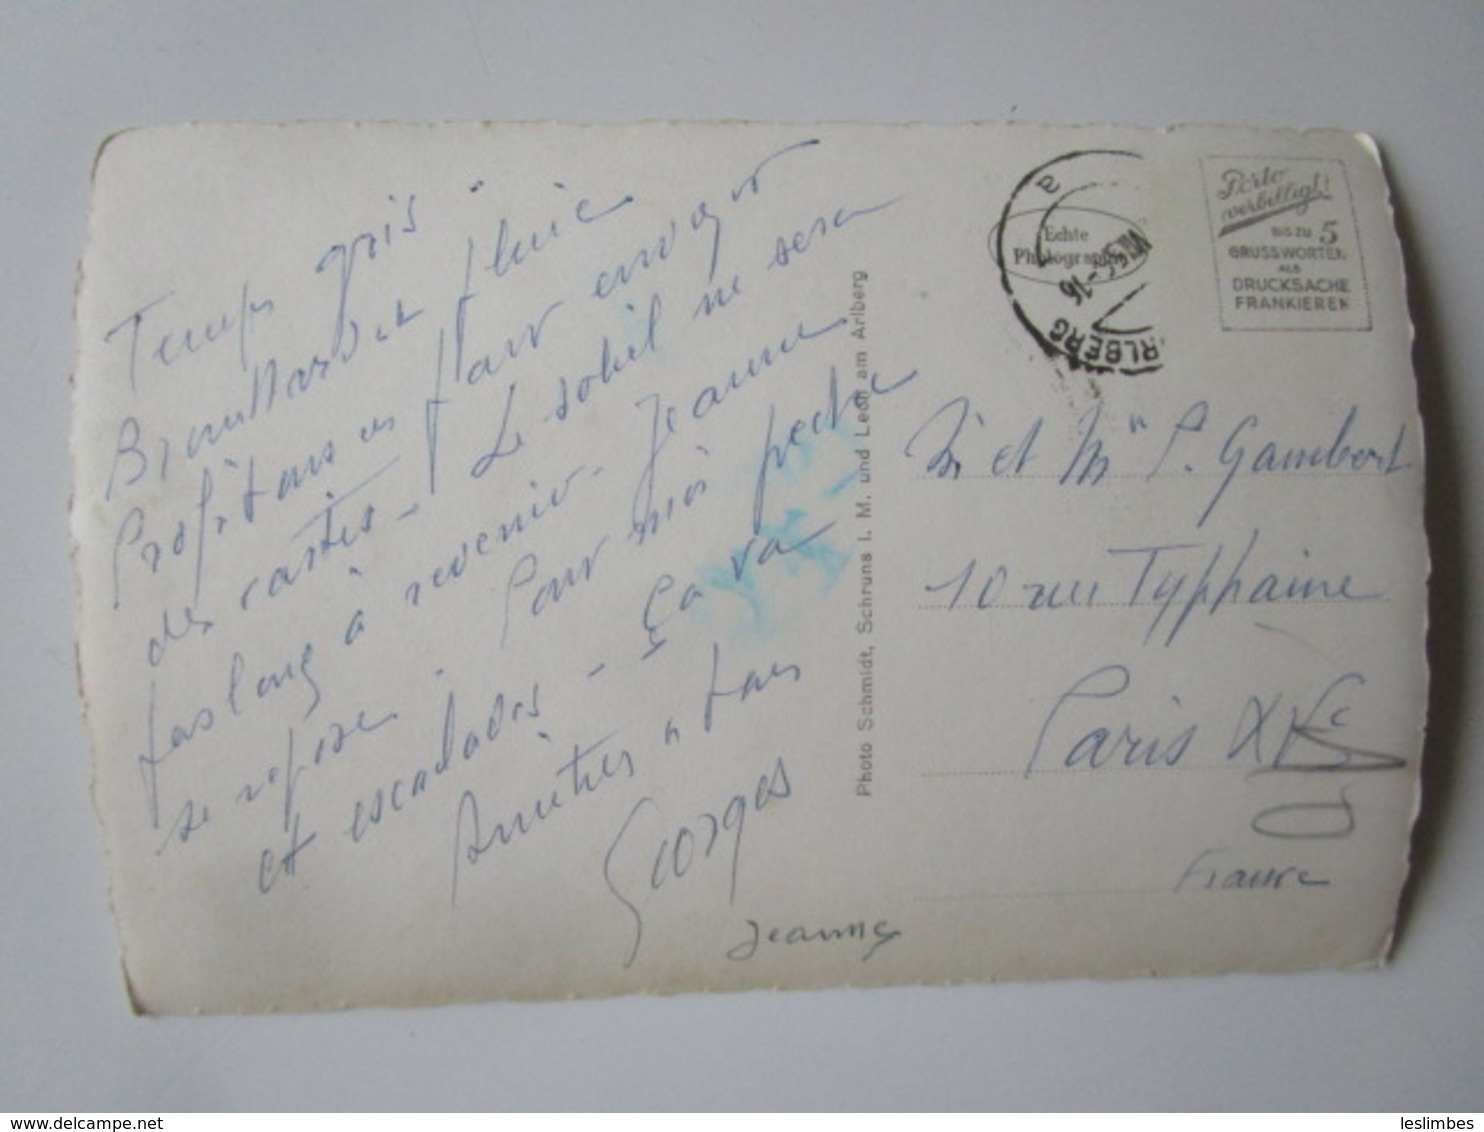 Temps gris -
Brouillard et pluie
Profitons en pour envoyer
des cartes - Le soleil ne sera
pas long à revenir. Jeanne
se repose. Pour moi pêche
et escalades - ça va
Amitiés à tous
Georges
Jeanne
Photo Schmidt, Schruns i. M. und Lech am Arlberg
Echte
Photographie
RLBERG
a
Porto
verbilligt!
BIS ZU 5
GRUSSWORTEN
ALS
DRUCKSACHE
FRANKIEREN
Mr et Mme P. Gambert
10 rue Typhaine
Paris
France
leslimbes